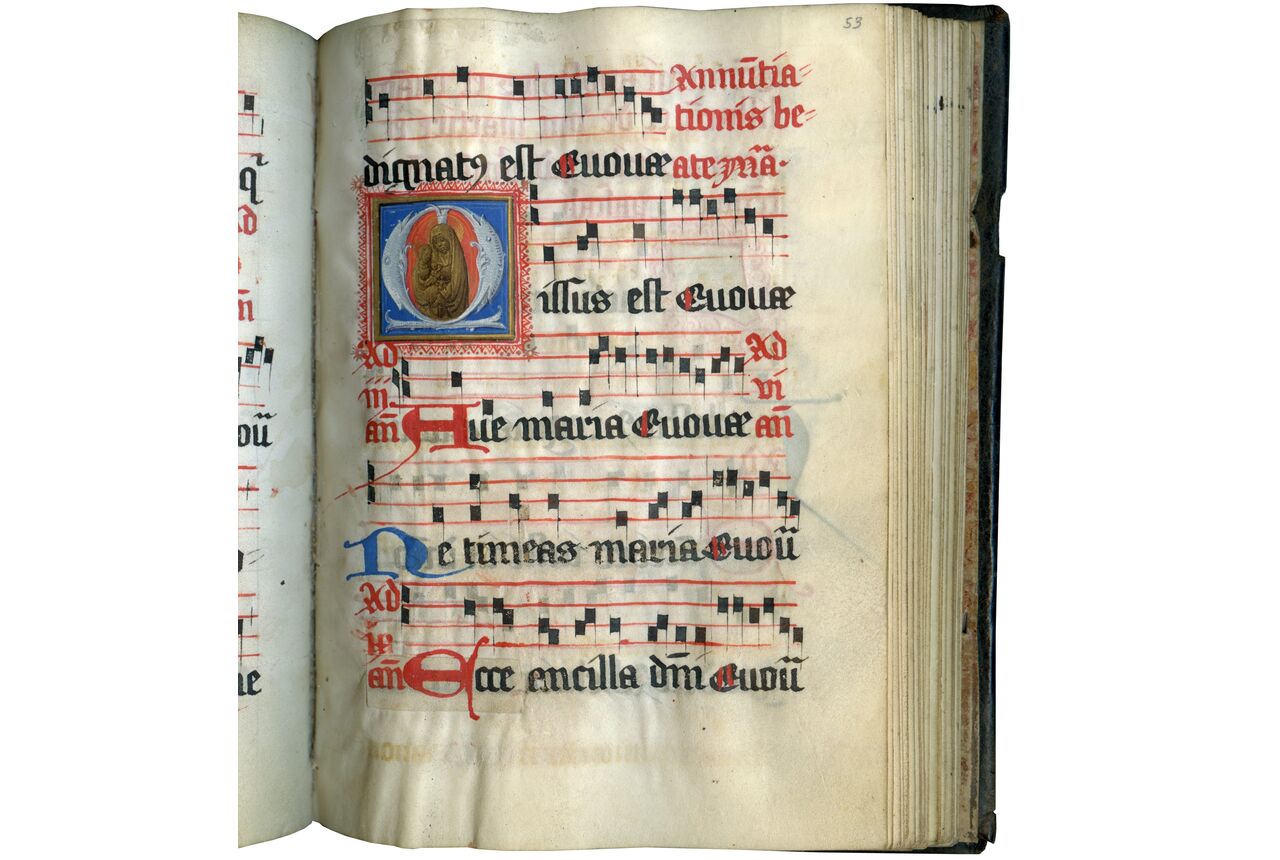 53
Annūtia=
tionis be=
dignatꝰ est Euouae ate mā̄a·
Missus est Euouae
Ad
iii
an̄ Aue maria Euouae
Ad
vi
an̄
Ne timeas maria Euoū
Ad
ix
an̄ Ecce encilla dn̄i Euoū